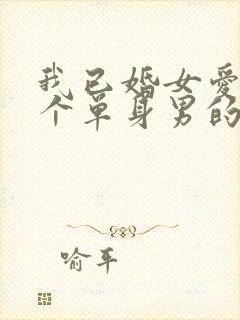 我已婚女爱
个单身男的
喻平